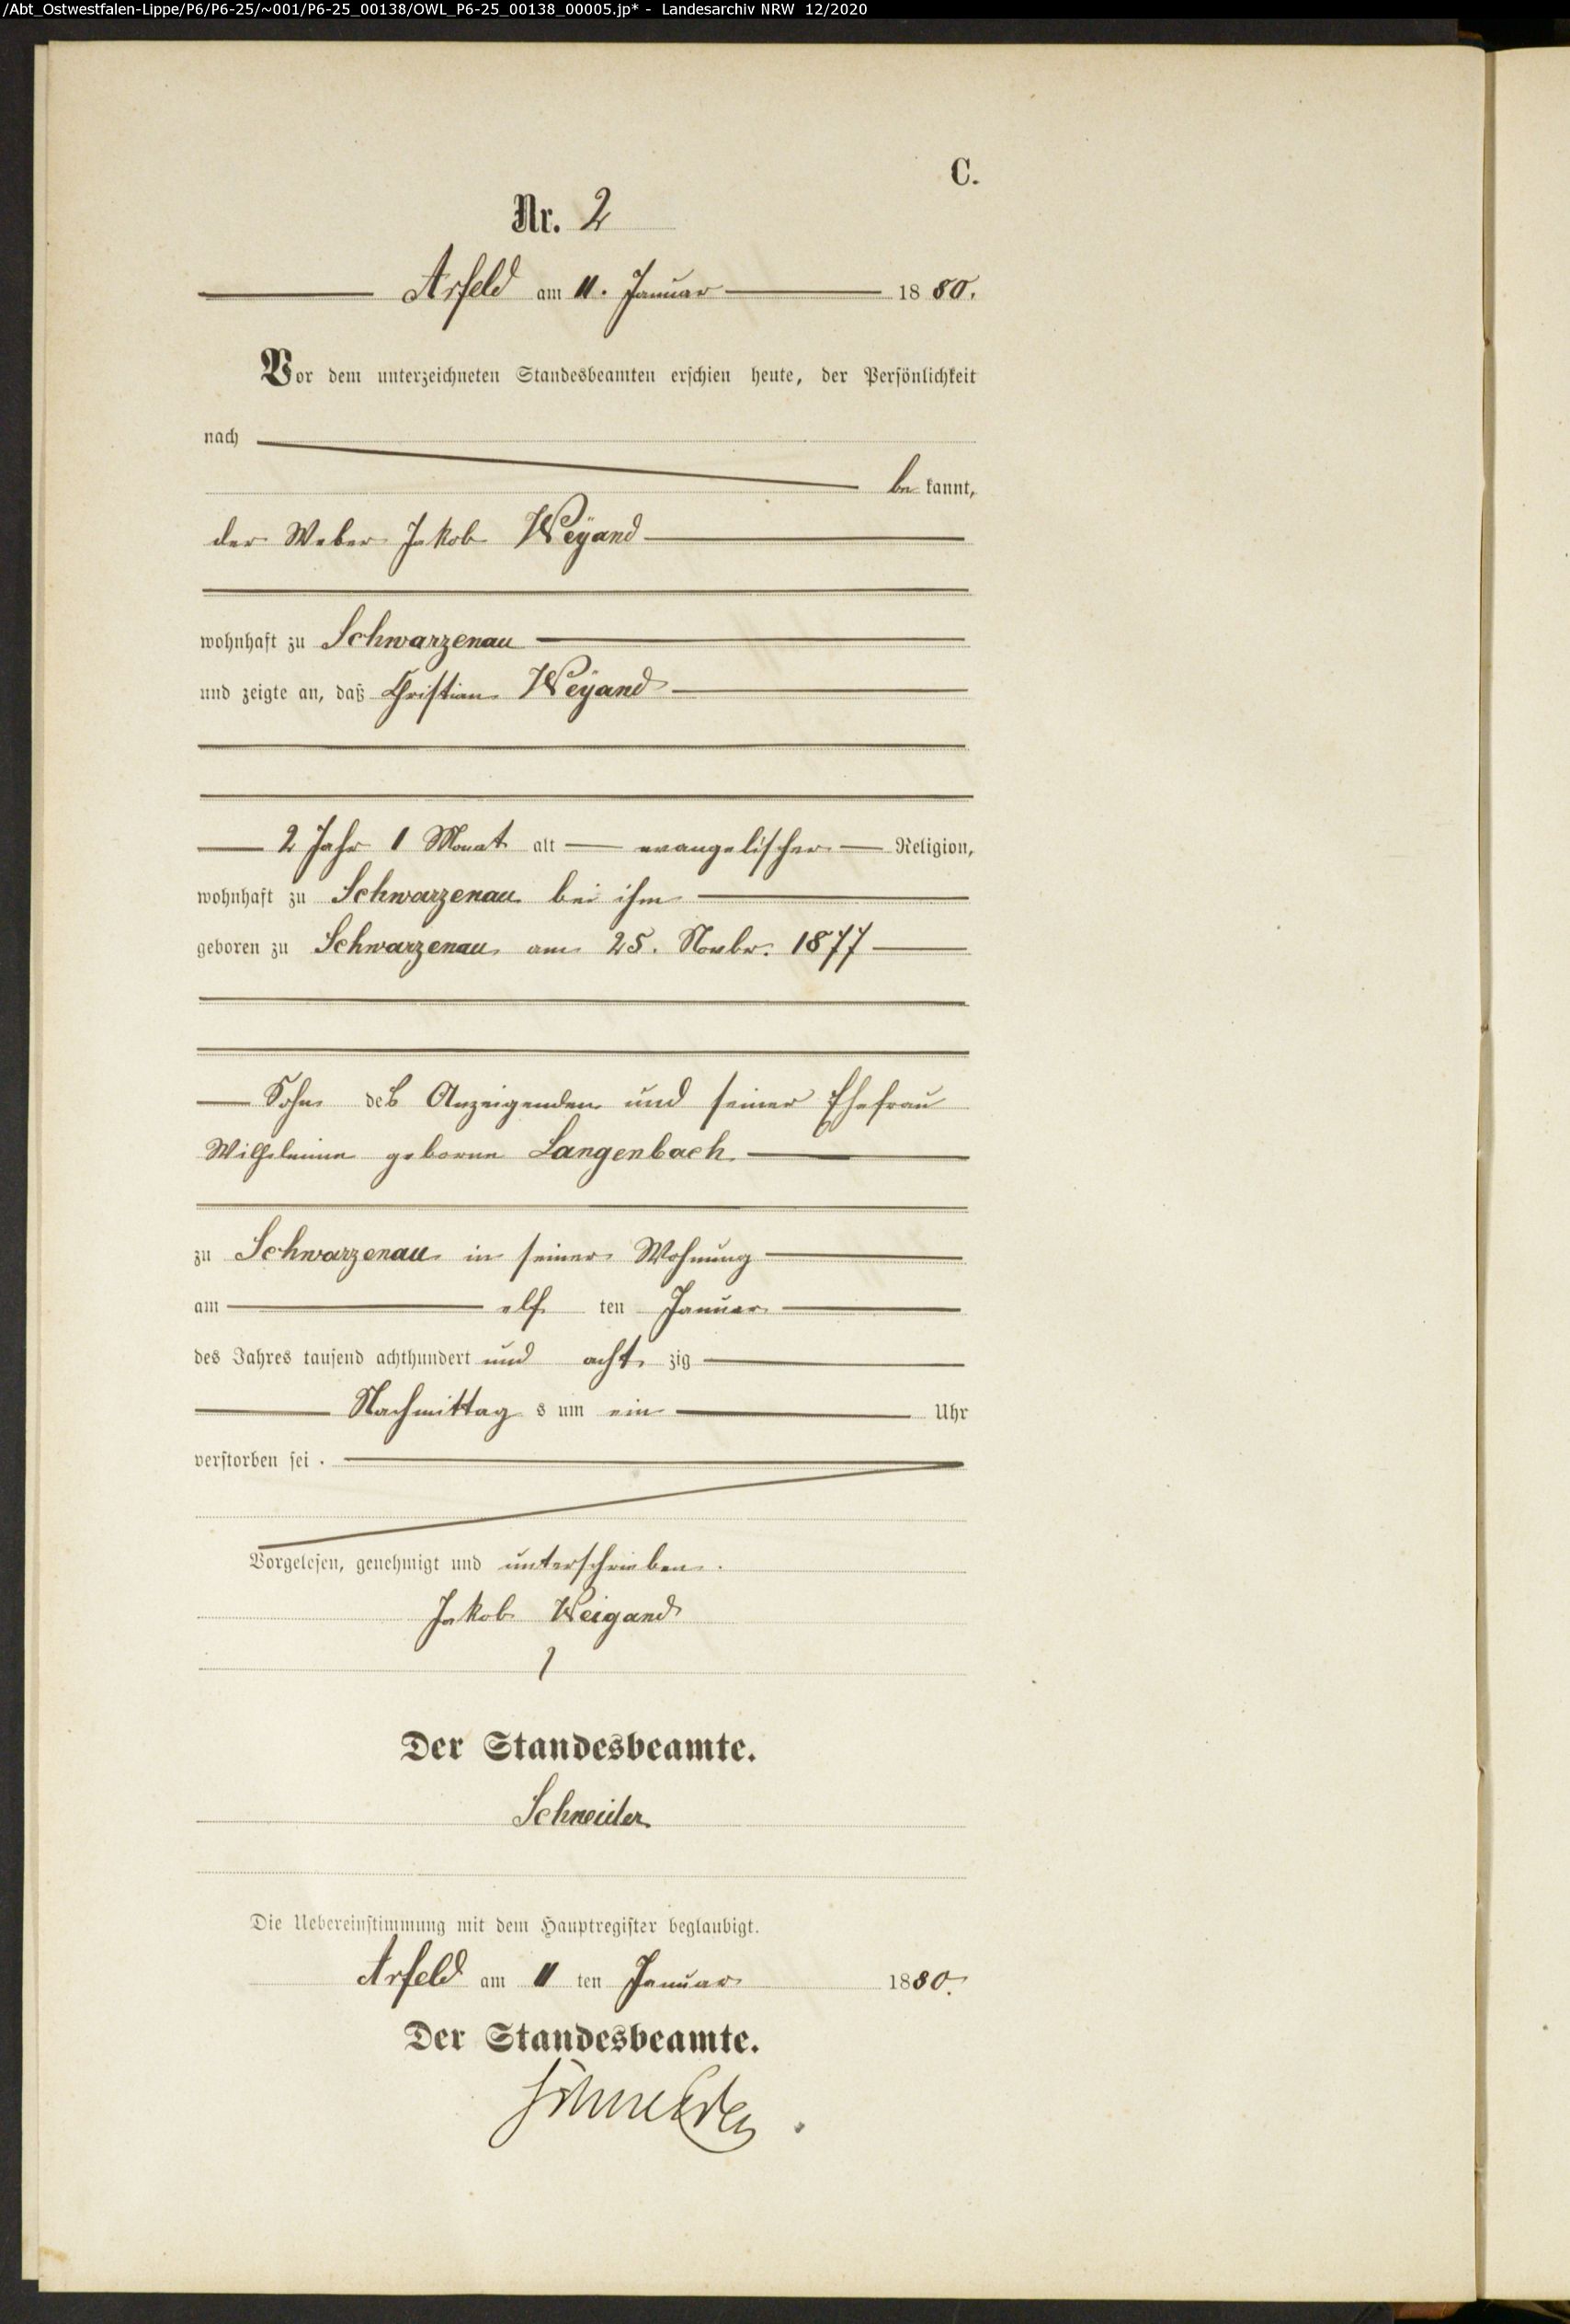 /Abt_Ostwestfalen-Lippe/P6/P6-25/~001/P6-25_00138/OWL_P6-25_00138_00005.jp* - Landesarchiv NRW 12/2020
C.
Nr. 2
Arfeld am 11. Januar 1880.
Vor dem unterzeichneten Standesbeamten erschien heute, der Persönlichkeit
nach
be kannt,
der Weber Jakob Weÿand
wohnhaft zu Schwarzenau
und zeigte an, daß Christian Weÿand
2 Jahr 1 Monat alt evangelischer Religion,
wohnhaft zu Schwarzenau bei ihm
geboren zu Schwarzenau am 25. Novbr. 1877
Sohn des Anzeigenden und seiner Ehefrau
Wilhelmine geborne Langenbach
zu Schwarzenau in seiner Wohnung
am elf ten Januar
des Jahres tausend achthundert und acht zig
Nachmittag s um ein Uhr
verstorben sei .
Vorgelesen, genehmigt und unterschrieben.
Jakob Weigand
Der Standesbeamte.
Schneider
Die Uebereinstimmung mit dem Hauptregister beglaubigt.
Arfeld am 11 ten Januar 1880.
Der Standesbeamte.
Schneider